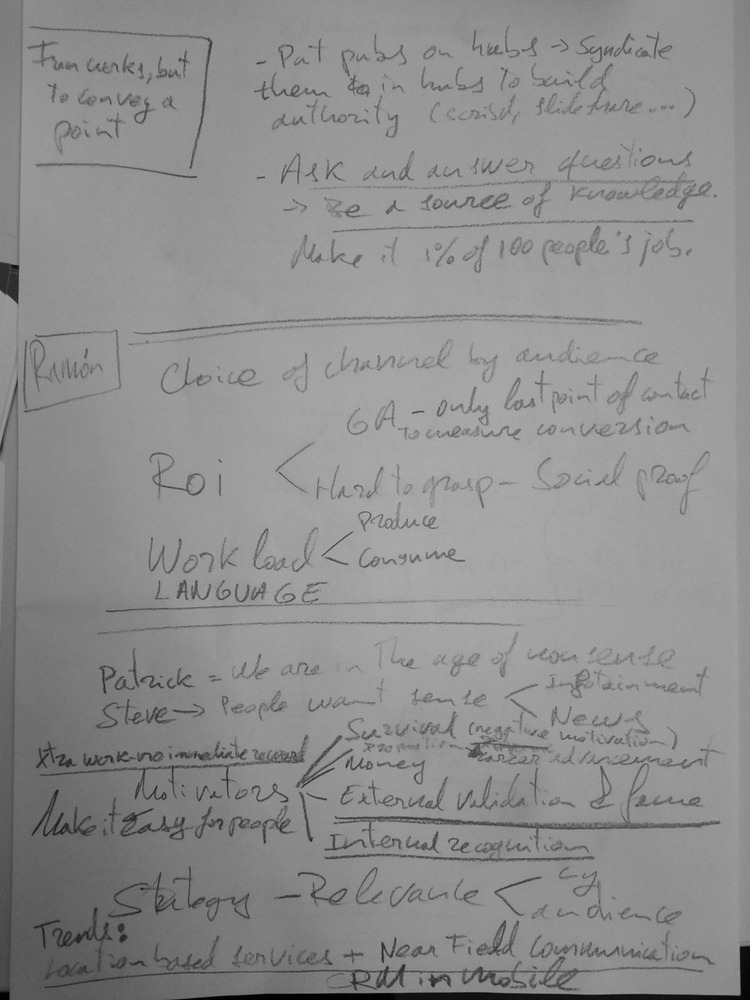 Fun works, but
to convey a
point
- Put pubs on hubs → Syndicate
them in hubs to build
authority (scribd, slideshare...)
- Ask and answer questions
→ Be a source of knowledge.
Make it 1% of 100 people's job.
Ramón
Choice of channel by audience
GA - only last point of contact
to measure conversion
Roi < Hard to grasp - Social proof
Work load < produce
consume
LANGUAGE
Patrick = We are in the age of nonsense
Steve → People want sense < Infotainment
News
Xtra work-no immediate reward
Survival (negative motivation)
Money
career advancement
Motivators - External validation & fame
Make it Easy for people
Internal recognition
Strategy - Relevance < by
audience
Trends:
Location based services + Near Field Communication
CRM in mobile